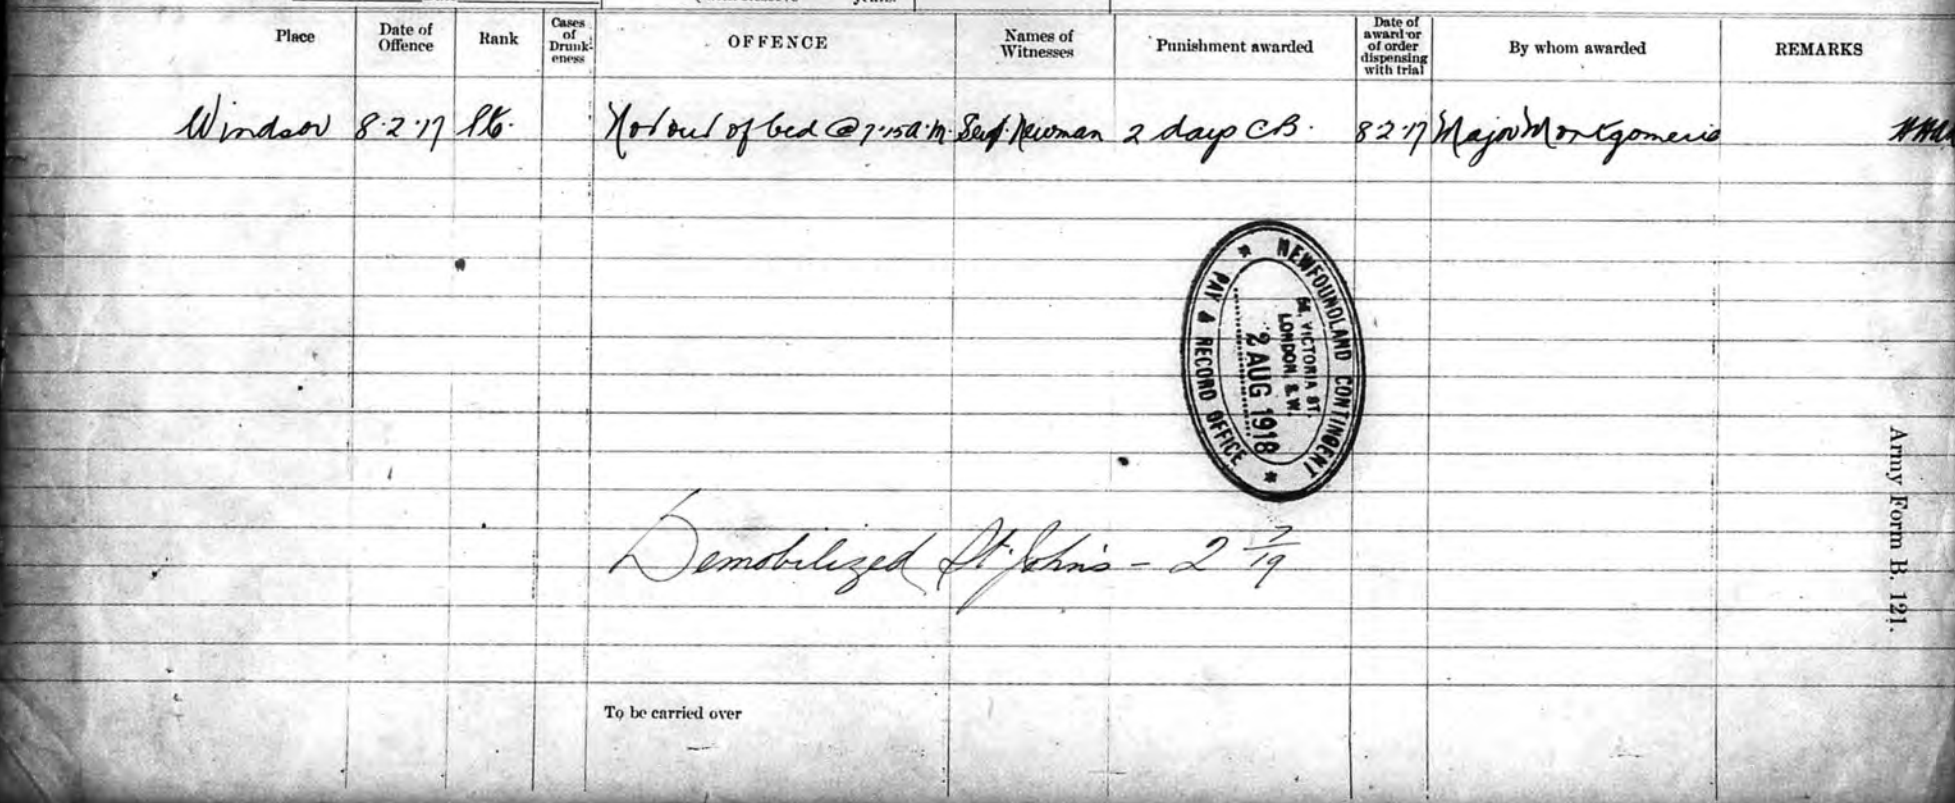 Place Date of Offence Rank Cases of Drunk-eness OFFENCE Names of Witnesses Punishment awarded Date of award or of order dispensing with trial By whom awarded REMARKS
Windsor 8.2.17 Pte. Not out of bed @ 7.15 a.m. Sergt. Newman 2 days C.B. 8 2.17 Major Montgomerie
NEWFOUNDLAND CONTINGENT
VICTORIA ST.
LONDON, S.W.
2 AUG 1918
PAY & RECORD OFFICE
Demobilized St. John's - 2 7/19
Army Form B. 121.
To be carried over